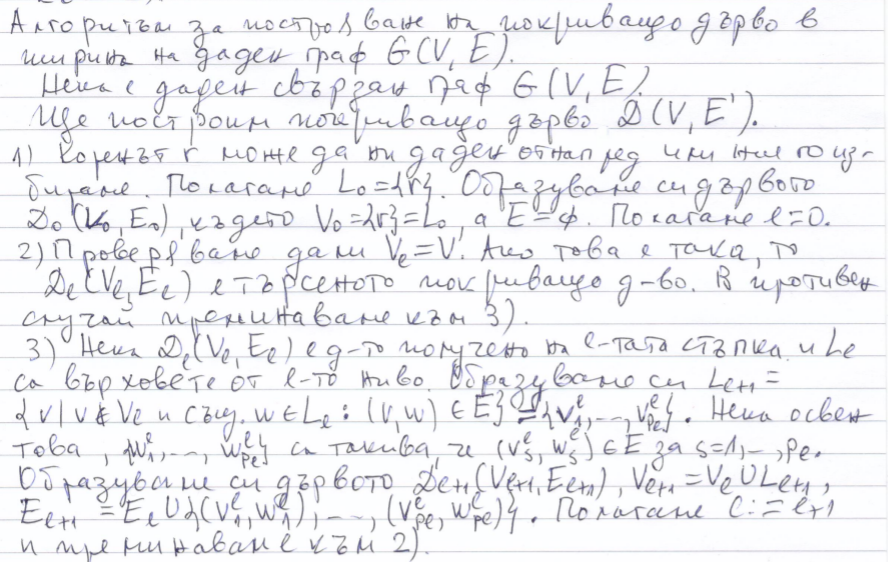 Алгоритъм за построяване на покриващо дърво в
ширина на даден граф G(V, E).
Нека е даден свързан граф G(V, E).
Ще построим покриващо дърво D(V, E').
1) Коренът r може да ни даден отнапред или ние го из-
бираме. Полагаме L₀={r}. Образуваме си дървото
D₀(V₀, E₀), където V₀={r}=L₀, а E=ф. Полагаме l=0.
2) Проверяваме дали Vₗ=V. Ако това е така, то
Dₗ(Vₗ, Eₗ) е търсеното покриващо д-во. В противен
случай преминаваме към 3).
3) Нека Dₗ(Vₗ, Eₗ) е д-то получено на l-тата стъпка и Lₗ
са върховете от l-то ниво. Образуваме си Lₗ₊₁ =
{v | v ∉ Vₗ и същ. w ∈ Lₗ : (v, w) ∈ E} = {v₁ˡ, .., v_pₗˡ}. Нека освен
това, {w₁ˡ, .., w_pₗˡ} са такива, че (v_sˡ, w_sˡ) ∈ E за s=1, .., pₗ.
Образуваме си дървото Dₗ₊₁(Vₗ₊₁, Eₗ₊₁), Vₗ₊₁ = Vₗ ∪ Lₗ₊₁,
Eₗ₊₁ = Eₗ ∪ {(v₁ˡ, w₁ˡ), .., (v_pₗˡ, w_pₗˡ)}. Полагаме l := l+1
и преминаваме към 2).